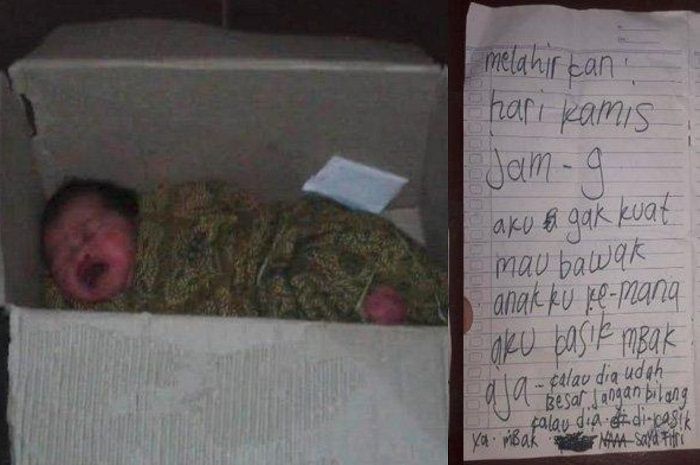 melahirkan :
hari kamis
jam - 9
aku gak kuat
mau bawak
anakku ke-mana
aku kasik mbak
aja - kalau dia udah
besar jangan bilang
kalau dia di-kasik
ya mbak saya Fitri